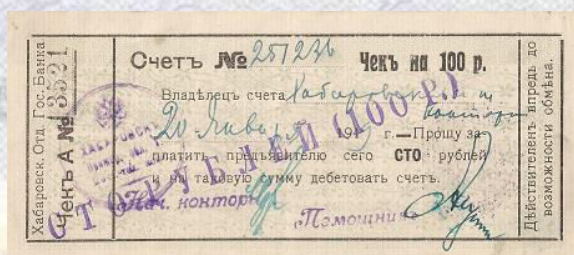 Хабаровск. Отд. Гос. Банка
Чекъ А № 13521
Счетъ № 251236 Чекъ на 100 р.
Владѣлецъ счета Хабаровск
20 Января 19 г.—Прошу за-
платить предъявителю сего СТО рублей
и на таковую сумму дебетовать счетъ.
Нач. конторы
Помощник
СТО РУБЛЕЙ (100 Р.)
Дѣйствителенъ впредь до
возможности обмѣна.